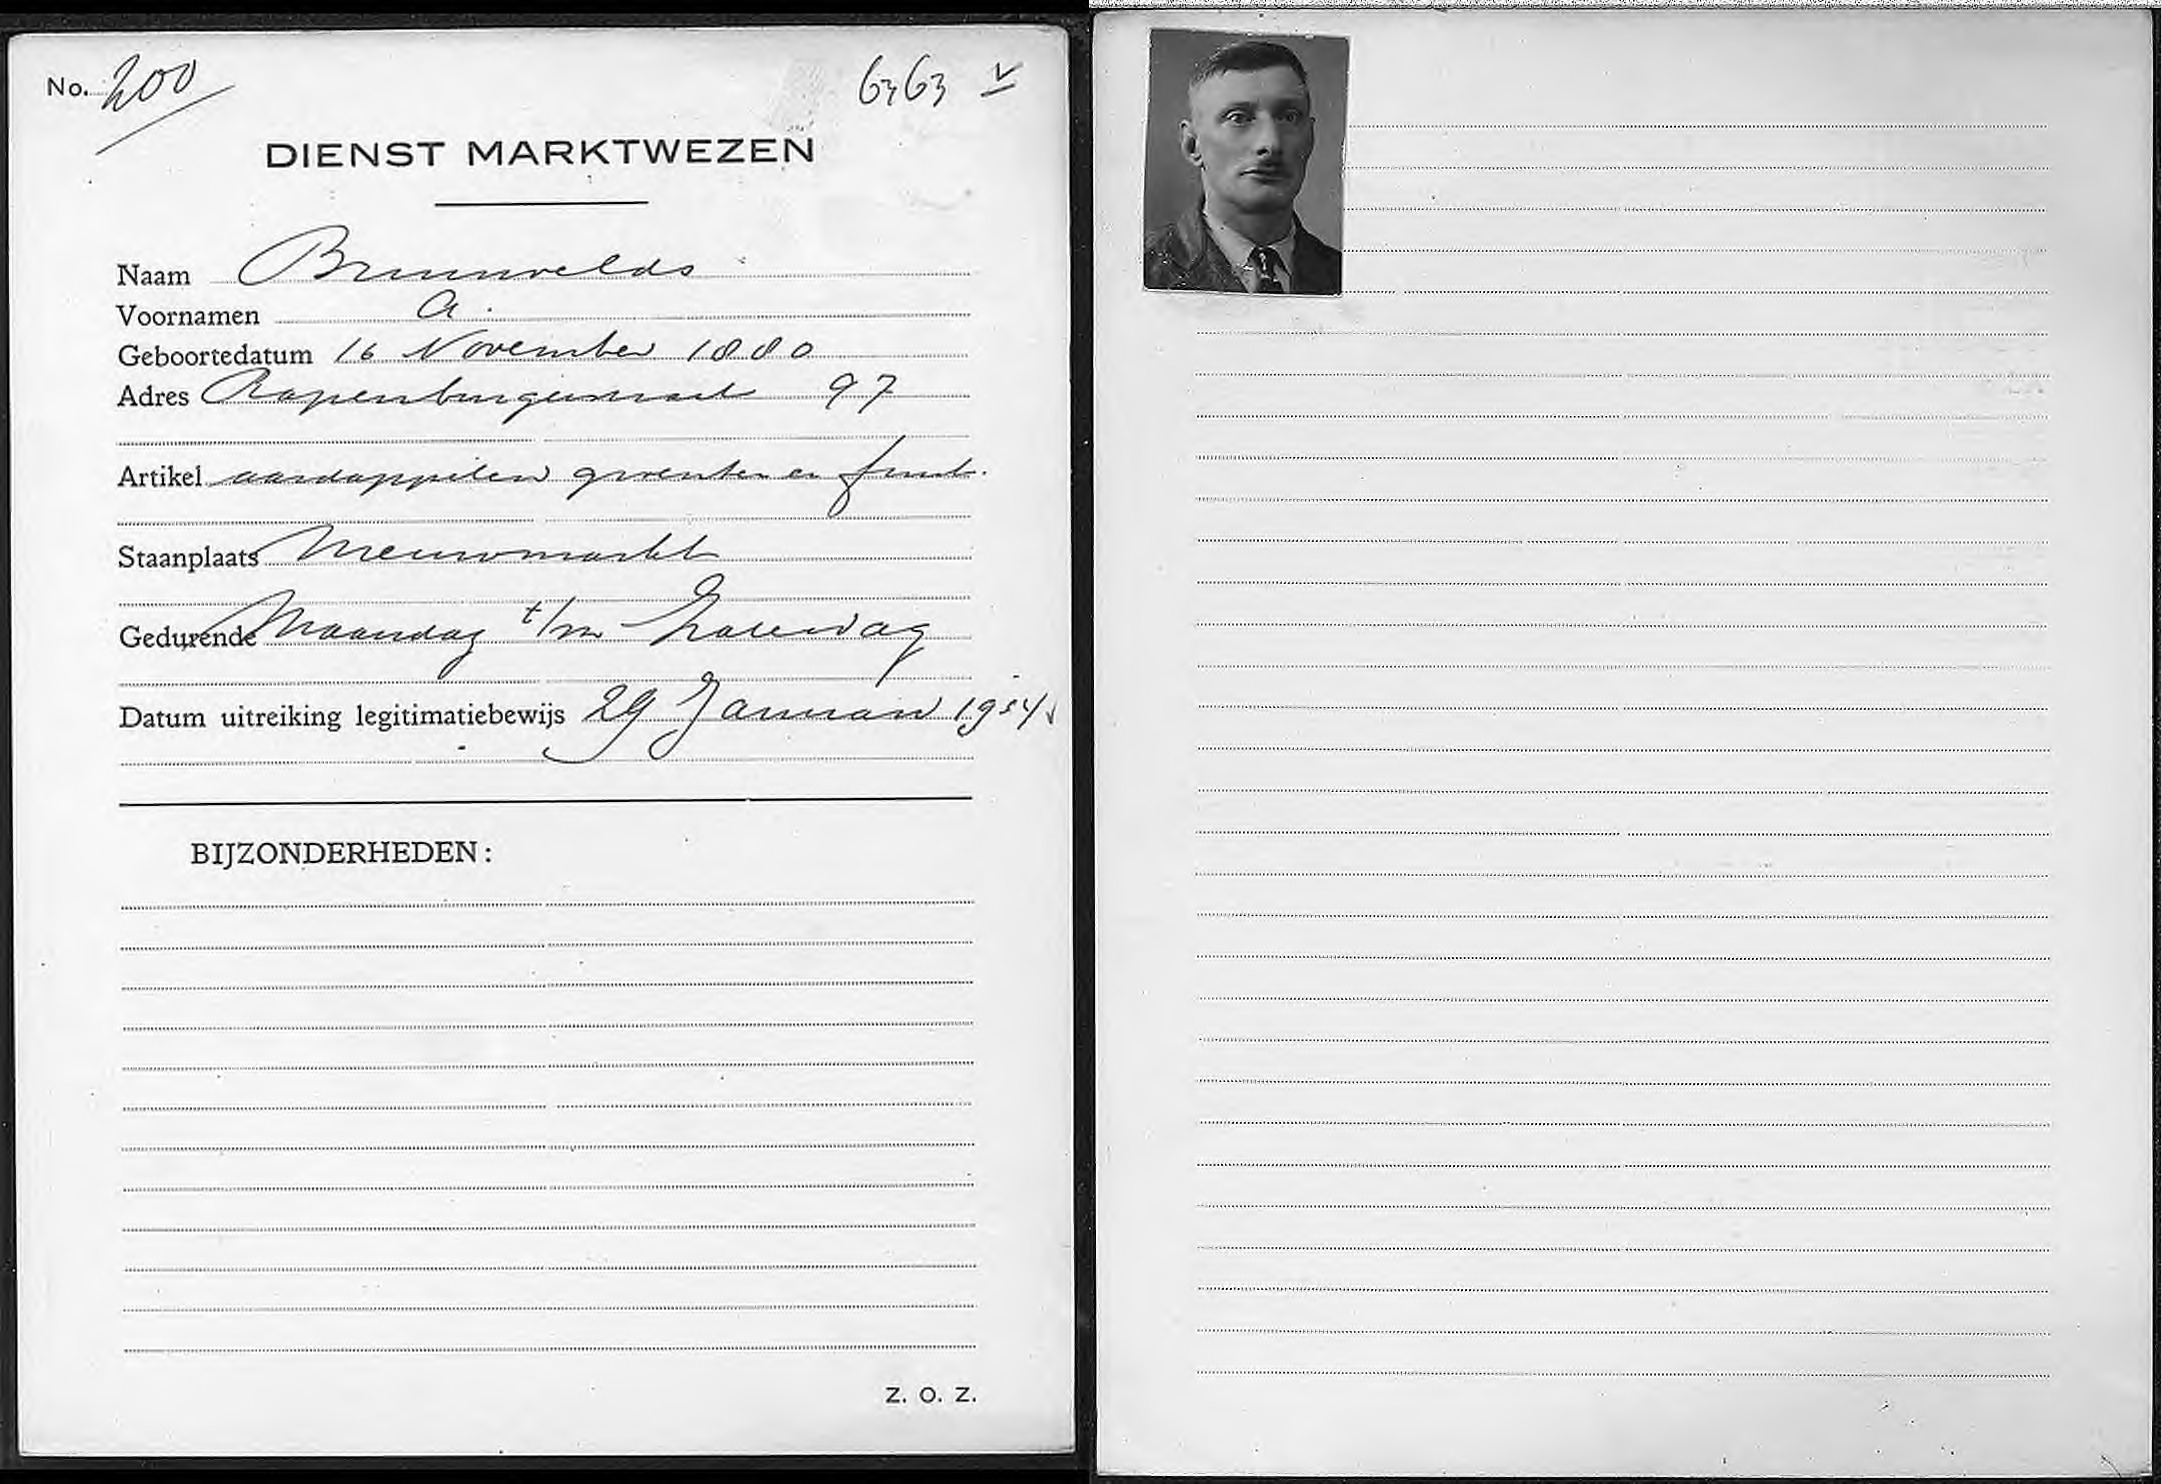 No. 200
DIENST MARKTWEZEN
Naam Brunnvelds
Voornamen A.
Geboortedatum 16 November 1880
Adres Rapenburgerstraat 97
Artikel aardappelen groenten en fruit.
Staanplaats Nieuwmarkt
Gedurende Maandag t/m Zaterdag
Datum uitreiking legitimatiebewijs 29 Januari
BIJZONDERHEDEN:
Z. O. Z.